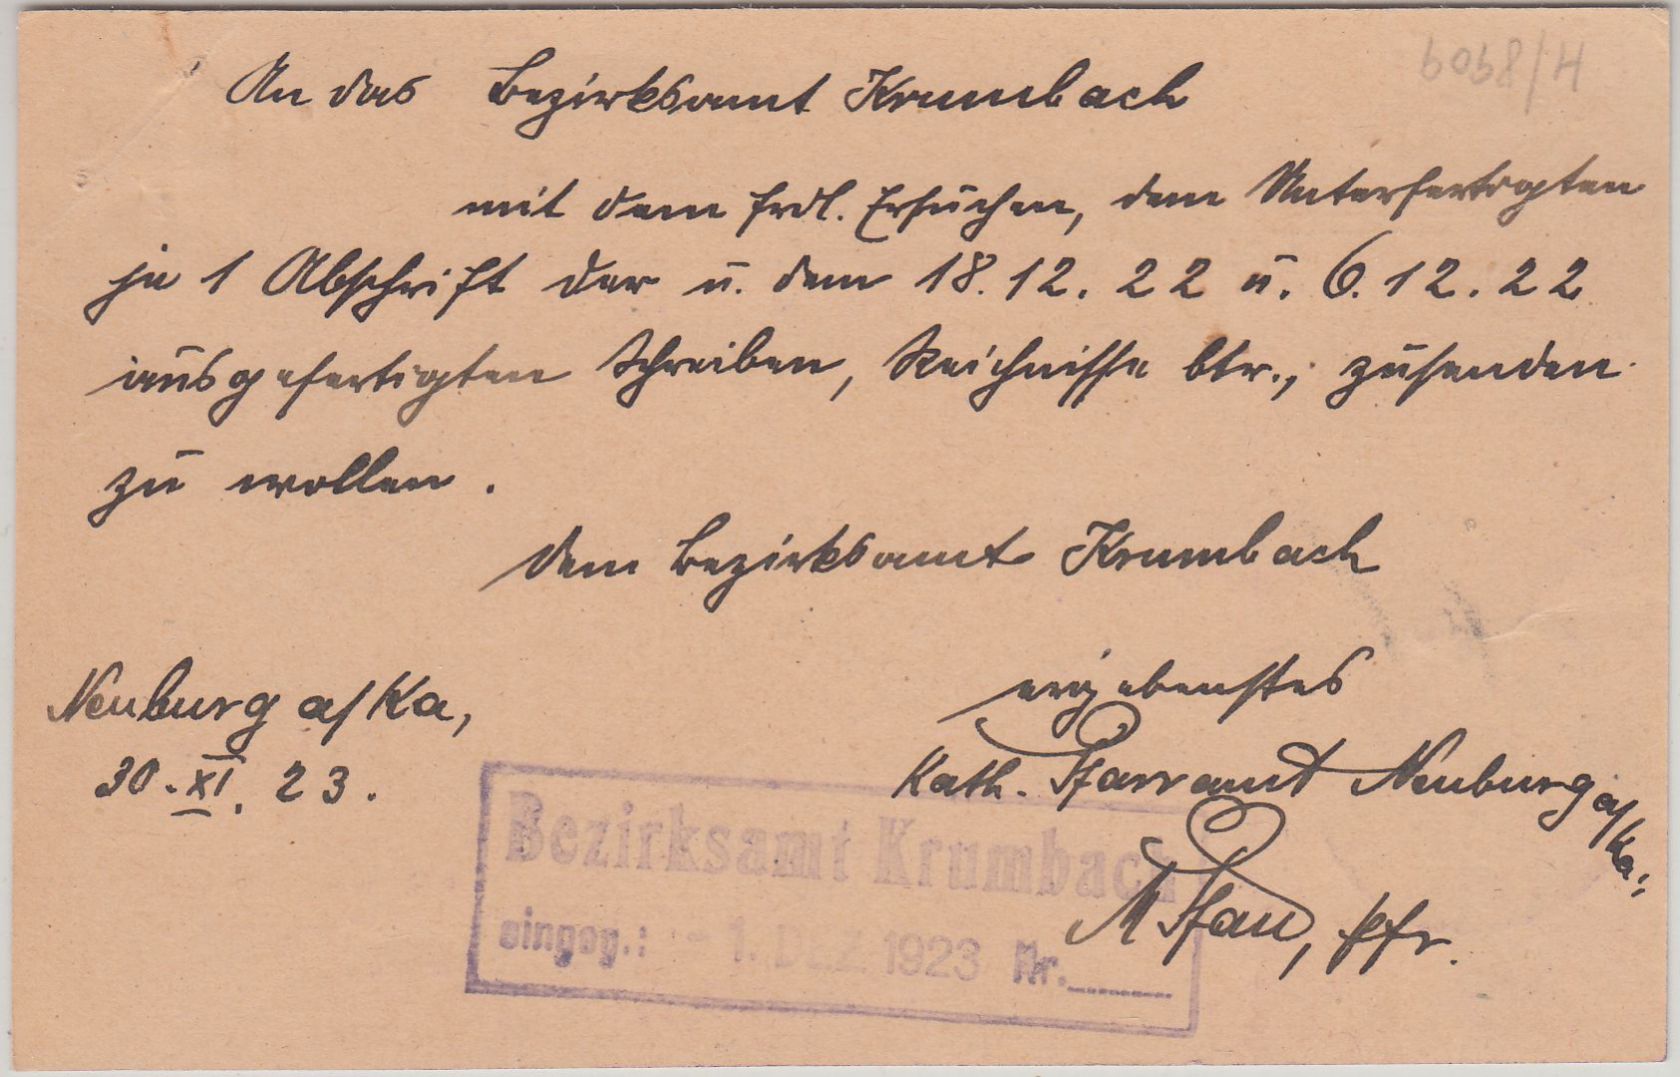 6098/H
An das Bezirksamt Krumbach
mit dem frdl. Ersuchen, dem Unterfertigten
je 1 Abschrift der u. dem 18.12.22 u. 6.12.22
ausgefertigten Schreiben, Reichnisse btr., zusenden
zu wollen.
Dem Bezirksamt Krumbach
ergebenstes
Neuburg a/Ka,
30.XI.23.
Kath. Pfarramt Neuburg a/Ka.;
M Pfau, Pfr.
Bezirksamt Krumbach
eingeg.: - 1. DEZ 1923 Nr.